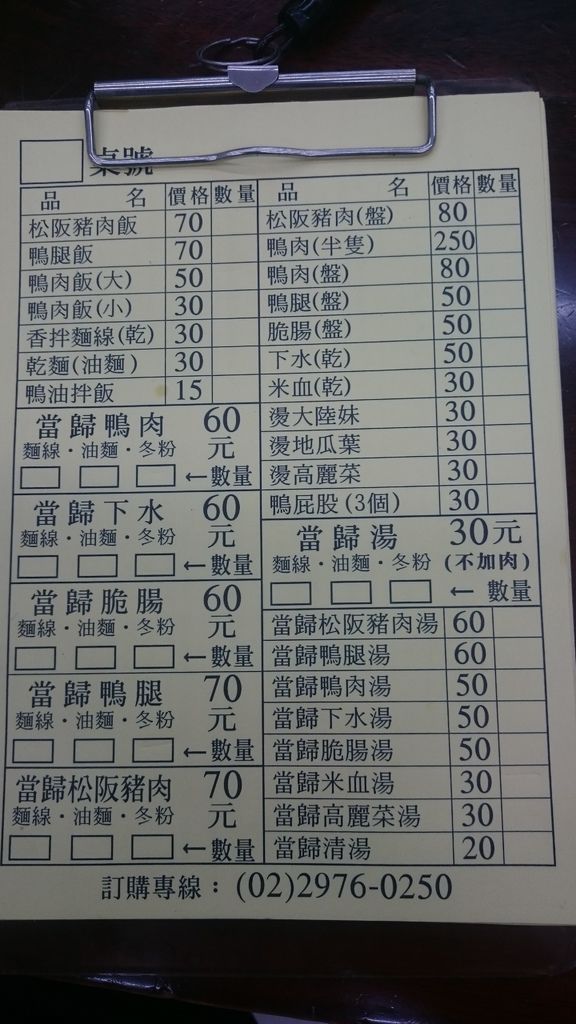 桌號
品 名 價格 數量
松阪豬肉飯 70
鴨腿飯 70
鴨肉飯(大) 50
鴨肉飯(小) 30
香拌麵線(乾) 30
乾麵(油麵) 30
鴨油拌飯 15
當歸鴨肉 60元
麵線·油麵·冬粉
←數量
當歸下水 60元
麵線·油麵·冬粉
←數量
當歸脆腸 60元
麵線·油麵·冬粉
←數量
當歸鴨腿 70元
麵線·油麵·冬粉
←數量
當歸松阪豬肉 70元
麵線·油麵·冬粉
←數量
品 名 價格 數量
松阪豬肉(盤) 80
鴨肉(半隻) 250
鴨肉(盤) 80
鴨腿(盤) 50
脆腸(盤) 50
下水(乾) 50
米血(乾) 30
燙大陸妹 30
燙地瓜葉 30
燙高麗菜 30
鴨屁股(3個) 30
當歸湯 30元
麵線·油麵·冬粉 (不加肉)
← 數量
當歸松阪豬肉湯 60
當歸鴨腿湯 60
當歸鴨肉湯 50
當歸下水湯 50
當歸脆腸湯 50
當歸米血湯 30
當歸高麗菜湯 30
當歸清湯 20
訂購專線：(02)2976-0250